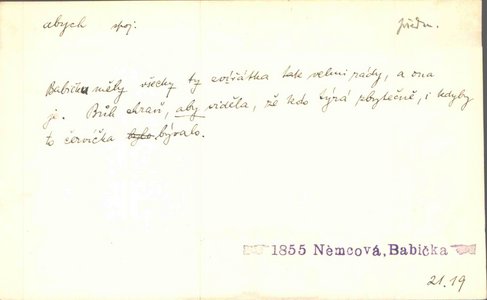 abych spoj. předm.
Babičku měly všecky ty zvířátka tak velmi rády, a ona
je. Bůh chraň, aby viděla, že kdo týrá zbytečně, i kdyby
to červíčka bylo bývalo.
1855 Němcová, Babička
21.19